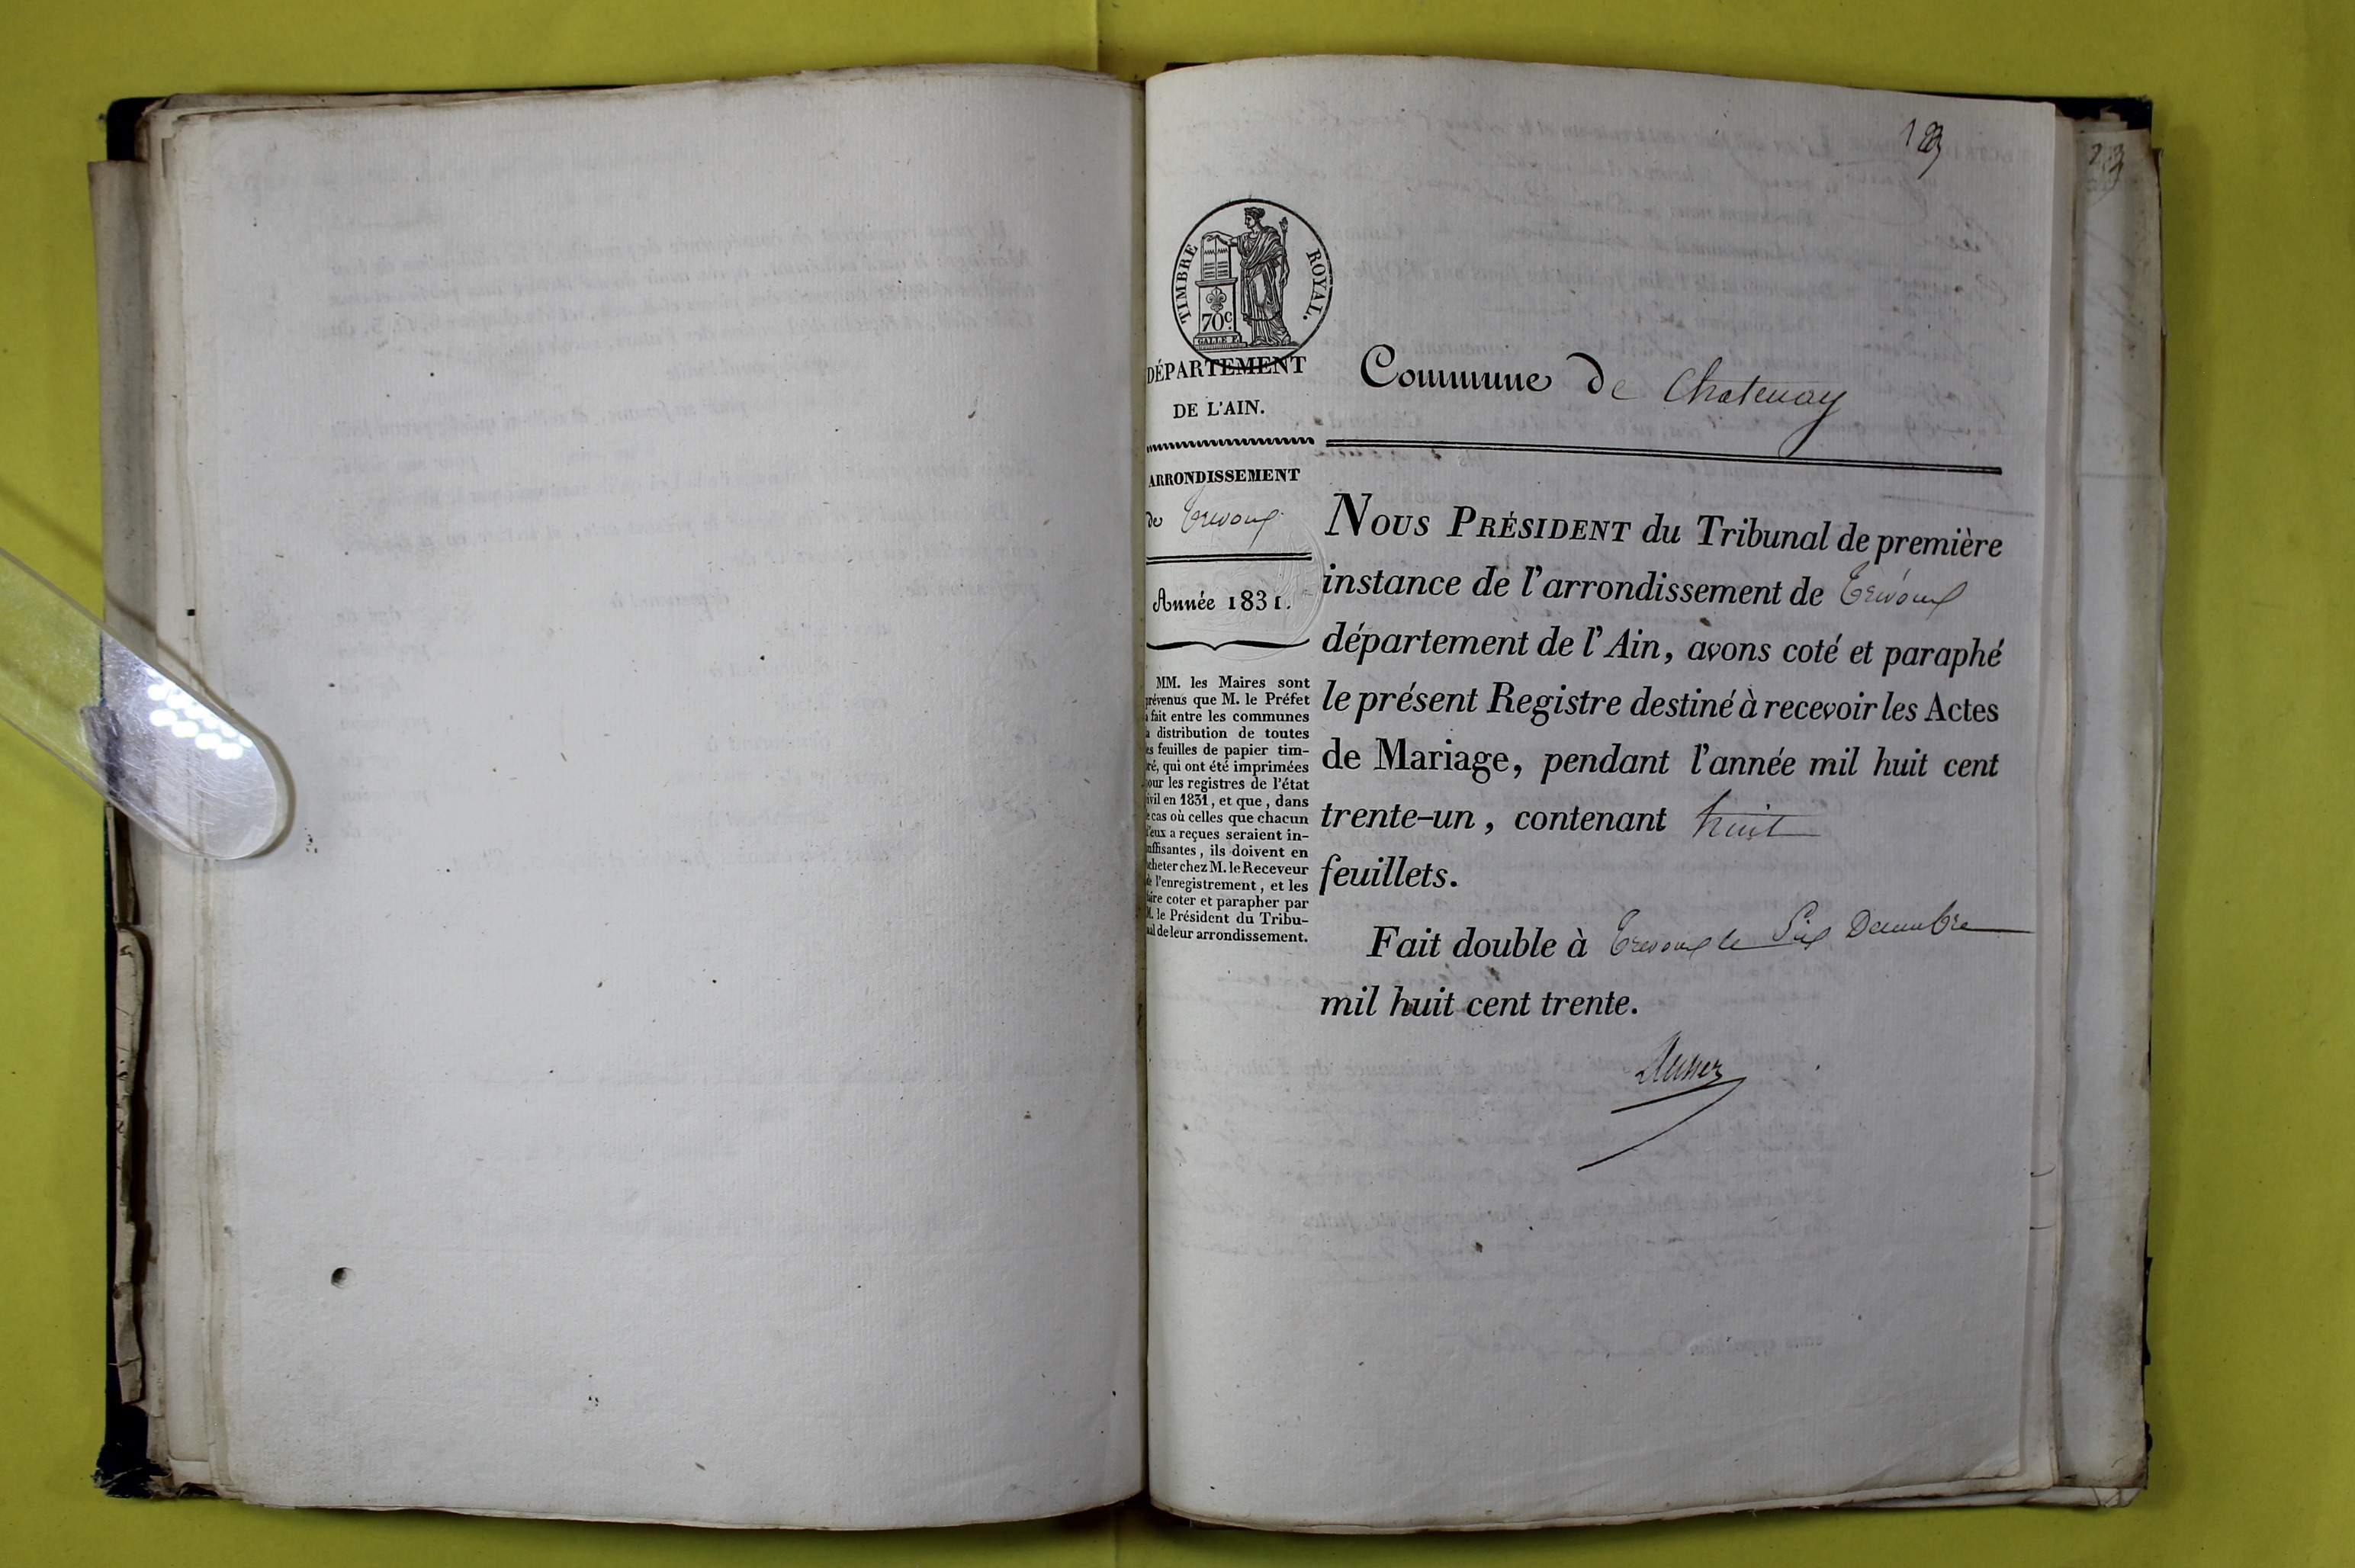 TIMBRE ROYAL.
70c.
GALLE F.
DÉPARTEMENT
DE L'AIN.
ARRONDISSEMENT
de Trevoux
Année 1831.
MM. les Maires sont
prévenus que M. le Préfet
a fait entre les communes
la distribution de toutes
les feuilles de papier tim-
bré, qui ont été imprimées
pour les registres de l'état
civil en 1831, et que, dans
le cas où celles que chacun
d'eux a reçues seraient in-
suffisantes, ils doivent en
acheter chez M. le Receveur
de l'enregistrement, et les
faire coter et parapher par
M. le Président du Tribu-
nal de leur arrondissement.
Commune de Chatenay
NOUS PRÉSIDENT du Tribunal de première
instance de l'arrondissement de Trévoux
département de l'Ain, avons coté et paraphé
le présent Registre destiné à recevoir les Actes
de Mariage, pendant l'année mil huit cent
trente-un, contenant huit
feuillets.
Fait double à Trevoux le Six Decembre
mil huit cent trente.